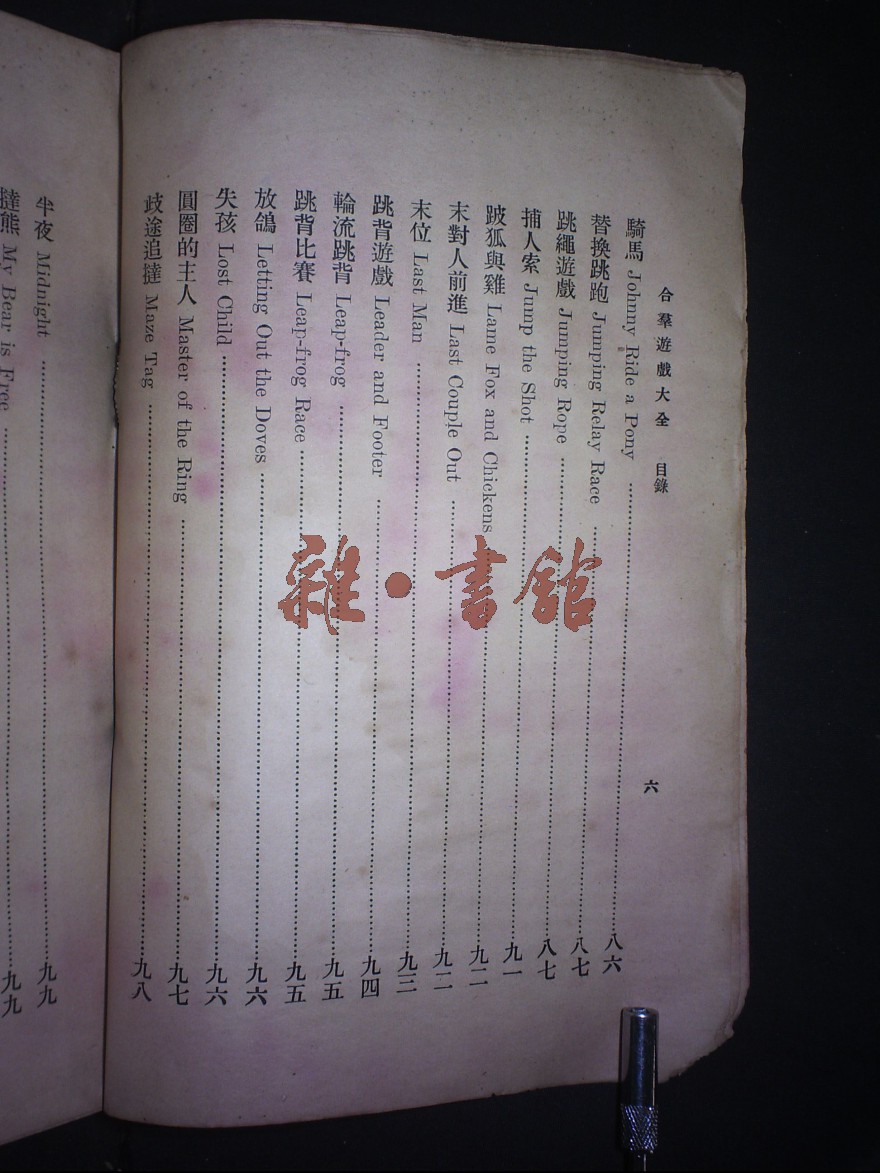 合羣遊戲大全 目錄 六
騎馬 Johnny Ride a Pony 八六
替換跳跑 Jumping Relay Race 八七
跳繩遊戲 Jumping Rope 八七
捕人索 Jump the Shot 九一
跛狐與雞 Lame Fox and Chickens 九二
末對人前進 Last Couple Out 九二
末位 Last Man 九三
跳背遊戲 Leader and Footer 九四
輪流跳背 Leap-frog 九五
跳背比賽 Leap-frog Race 九五
放鴿 Letting Out the Doves 九六
失孩 Lost Child 九六
圓圈的主人 Master of the Ring 九七
歧途追撻 Maze Tag 九八
半夜 Midnight 九九
撻熊 My Bear is Free 九九
雜·書館